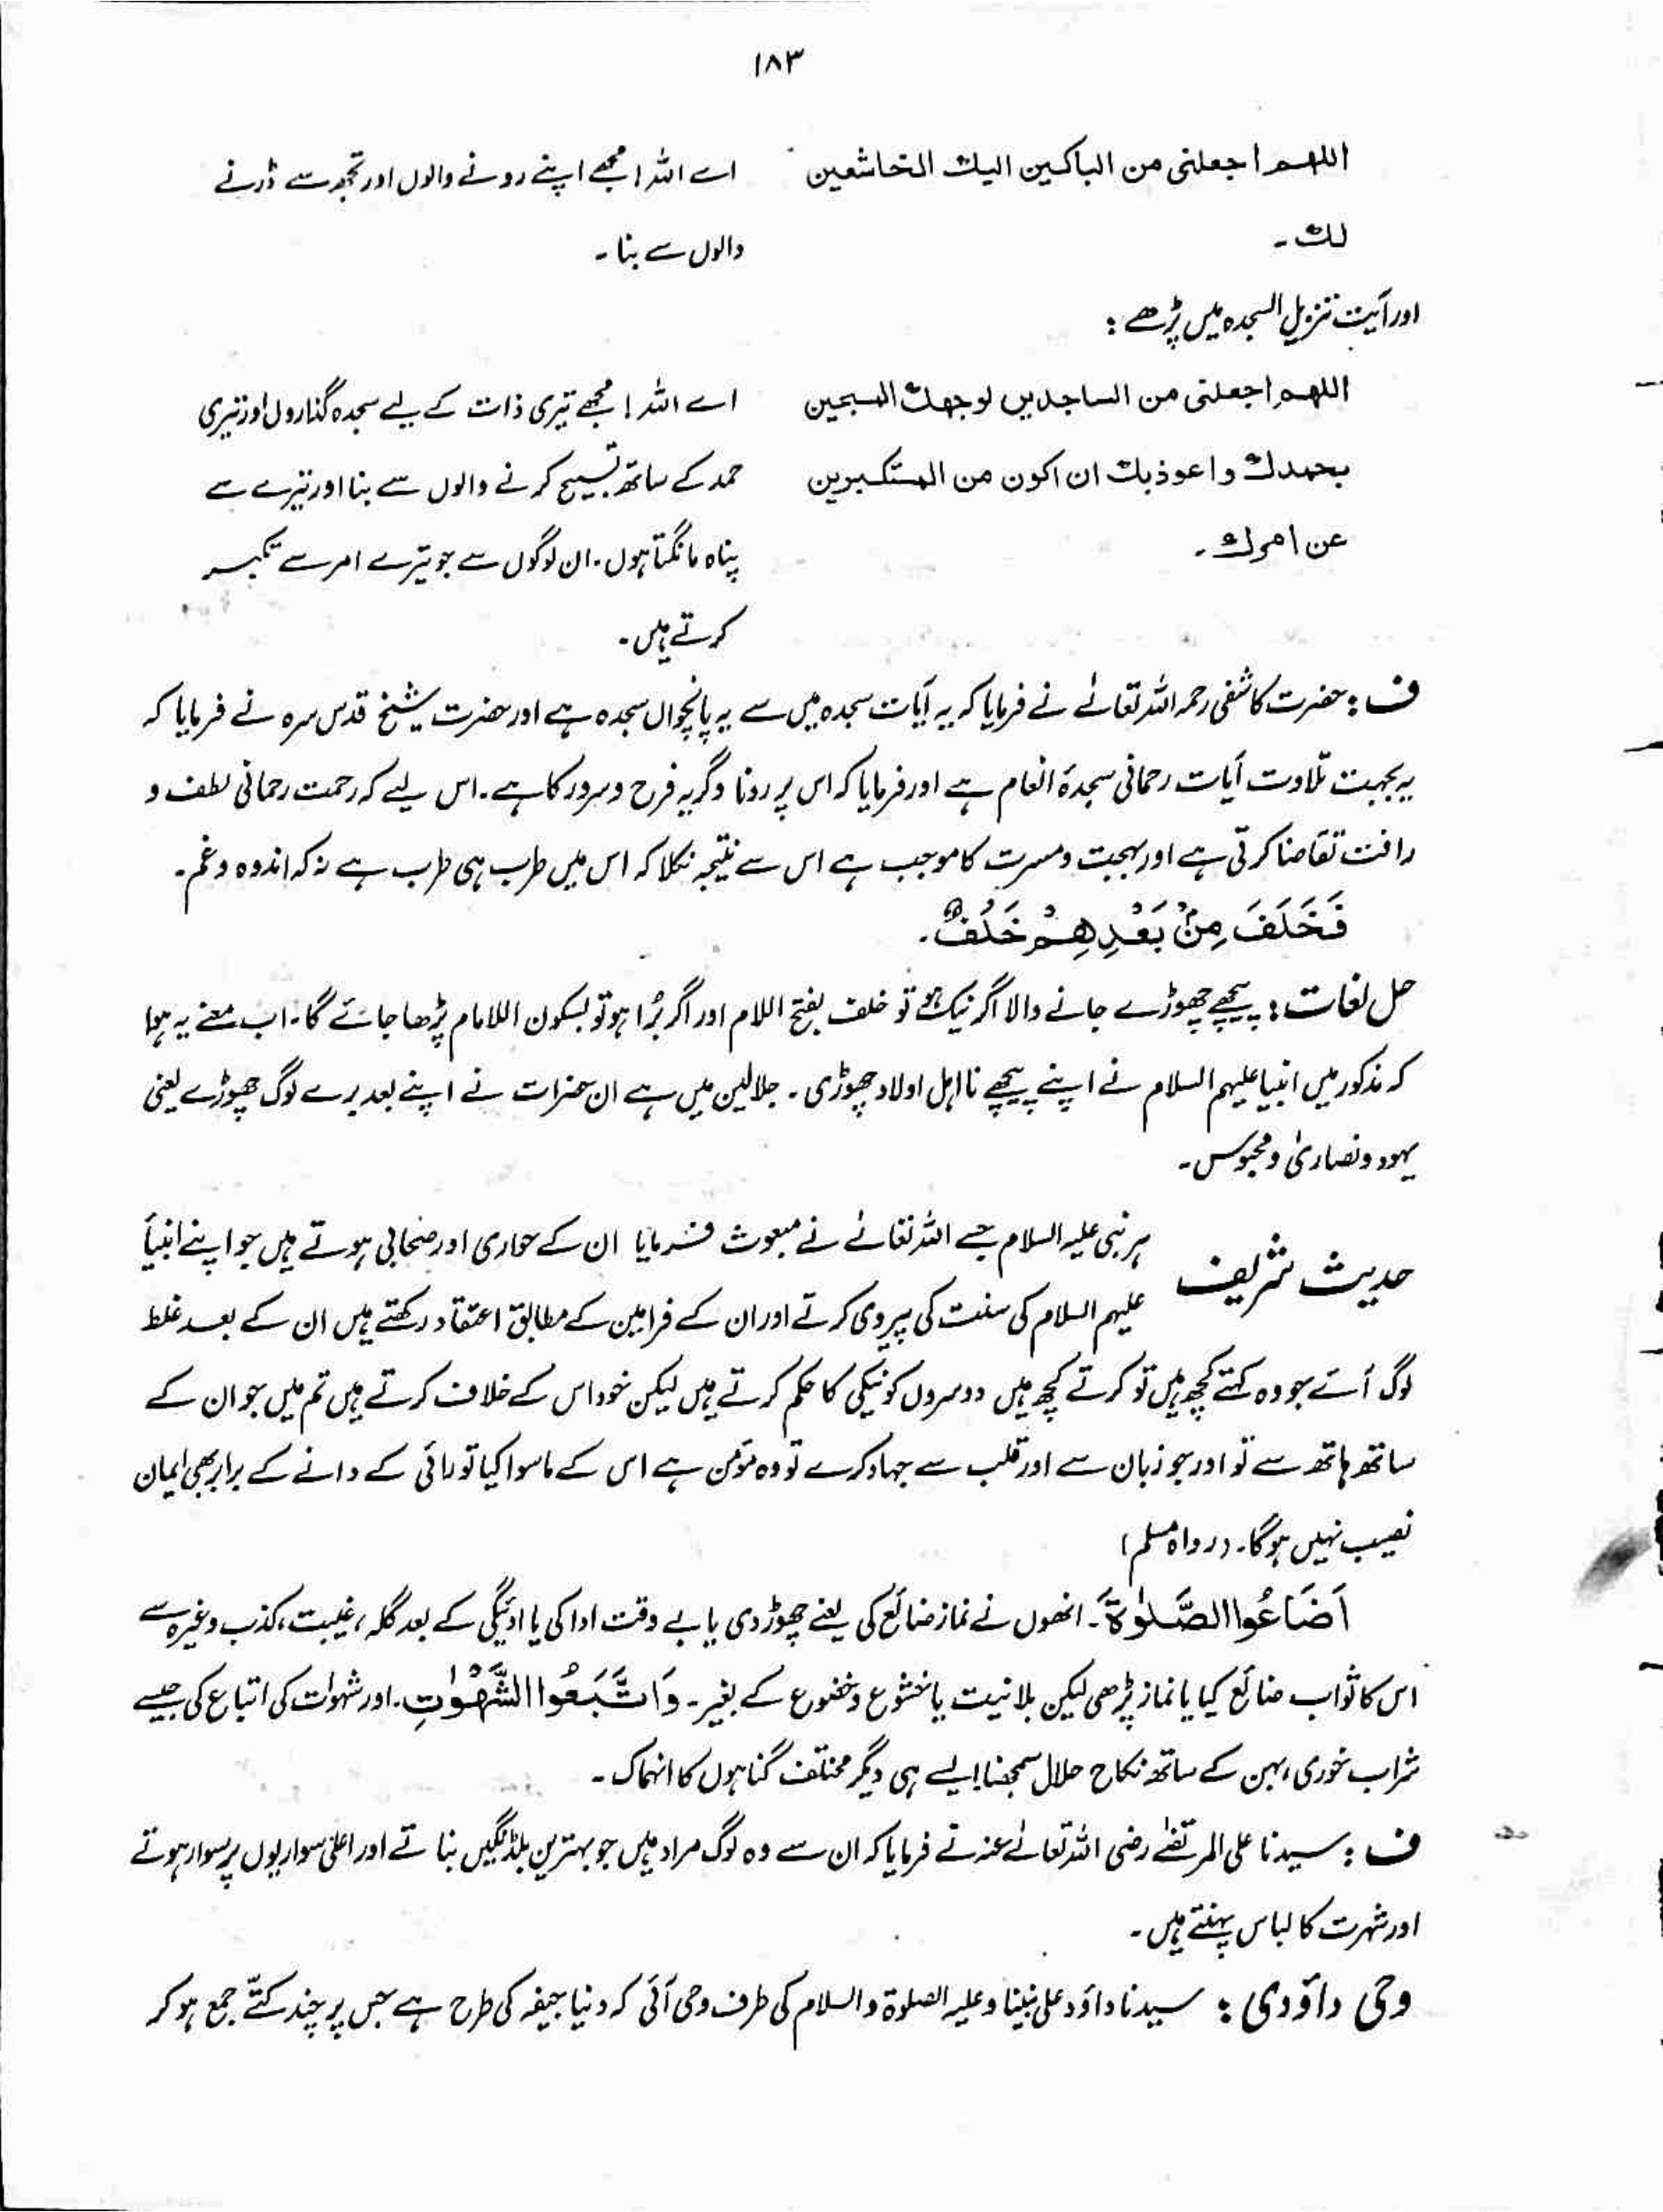 ۱۸۳
اللهم اجعلنی من الباکین الیك الخاشعین
لك ۔
اے اللہ! مجھے اپنے رونے والوں اور تجھ سے ڈرنے
والوں سے بنا ۔
اور آیت تنزیل السجدہ میں پڑھے :
اللهم اجعلنی من الساجدین لوجهك المسبحین
بحمدك و اعوذ بك ان اکون من المستکبرین
عن امرك ۔
اے اللہ! مجھے تیری ذات کے لیے سجدہ گذاروں اور تیری
حمد کے ساتھ تسبیح کرنے والوں سے بنا اور تیرے سے
پناہ مانگتا ہوں۔ ان لوگوں سے جو تیرے امر سے تکبر
کرتے ہیں۔
ف : حضرت کاشفی رحمہ اللہ تعالےٰ نے فرمایا کہ یہ آیات سجدہ میں سے یہ پانچواں سجدہ ہے اور حضرت شیخ قدس سرہ نے فرمایا کہ
یہ بجہت تلاوت آیات رحمانی سجدۂ انعام ہے اور فرمایا کہ اس پر رونا و گریہ فرح و سرور کا ہے۔ اس لیے کہ رحمت رحمانی لطف و
رافت تقاضا کرتی ہے اور بہجت و مسرت کا موجب ہے اس سے نتیجہ نکلا کہ اس میں طرب ہی طرب ہے نہ کہ اندوہ و غم۔
فَخَلَفَ مِنْۢ بَعْدِهِمْ خَلْفٌ ۔
حل لغات : پیچھے چھوڑے جانے والا اگر نیک ہو تو خلف بفتح اللام اور اگر بُرا ہو تو بسکون اللامام پڑھا جائے گا۔ اب معنے یہ ہوا
کہ مذکورمیں انبیا علیہم السلام نے اپنے پیچھے نااہل اولاد چھوڑی ۔ جلالین میں ہے ان حضرات نے اپنے بعد برے لوگ چھوڑے یعنی
یہود و نصاریٰ و مجوس۔
حدیث شریف
ہر نبی علیہ السلام جسے اللہ تعالےٰ نے مبعوث فرمایا ان کے حواری اور صحابی ہوتے ہیں جو اپنے انبیأ
علیہم السلام کی سنت کی پیروی کرتے اور ان کے فرامین کے مطابق اعتقاد رکھتے ہیں ان کے بعد غلط
لوگ آئے جو وہ کہتے کچھ ہیں تو کرتے کچھ ہیں دوسروں کو نیکی کا حکم کرتے ہیں لیکن خود اس کے خلاف کرتے ہیں تم میں جو ان کے
ساتھ ہاتھ سے تو اور جو زبان سے اور قلب سے جہاد کرے تو وہ مومن ہے اس کے ماسوا کیا تو رائی کے دانے کے برابر بھی ایمان
نصیب نہیں ہوگا۔ (رواہ مسلم)
اَضَاعُوا الصَّلٰوةَ۔ انھوں نے نماز ضائع کی یعنے چھوڑ دی یا بے وقت ادا کی یا ادئیگی کے بعد گلہ، غیبت، کذب وغیرہ سے
اس کا ثواب ضائع کیا یا نماز پڑھی لیکن بلا نیت یا خشوع و خضوع کے بغیر۔ وَاتَّبَعُوا الشَّهَوٰتِ۔ اور شہوات کی اتباع کی جیسے
شراب خوری، بہن کے ساتھ نکاح حلال سمجھنا ایسے ہی دیگر مختلف گناہوں کا انہماک ۔
ف : سیدنا علی المرتضےٰ رضی اللہ تعالےٰ عنہ نے فرمایا کہ ان سے وہ لوگ مراد ہیں جو بہترین بلڈنگیں بناتے اور اعلیٰ سواریوں پر سوار ہوتے
اور شہرت کا لباس پہنتے ہیں ۔
وحی داؤدی : سیدنا داؤد علی نبینا وعلیہ الصلوٰۃ والسلام کی طرف وحی آئی کہ دنیا جیفہ کی طرح ہے جس پر چند کتّے جمع ہو کر